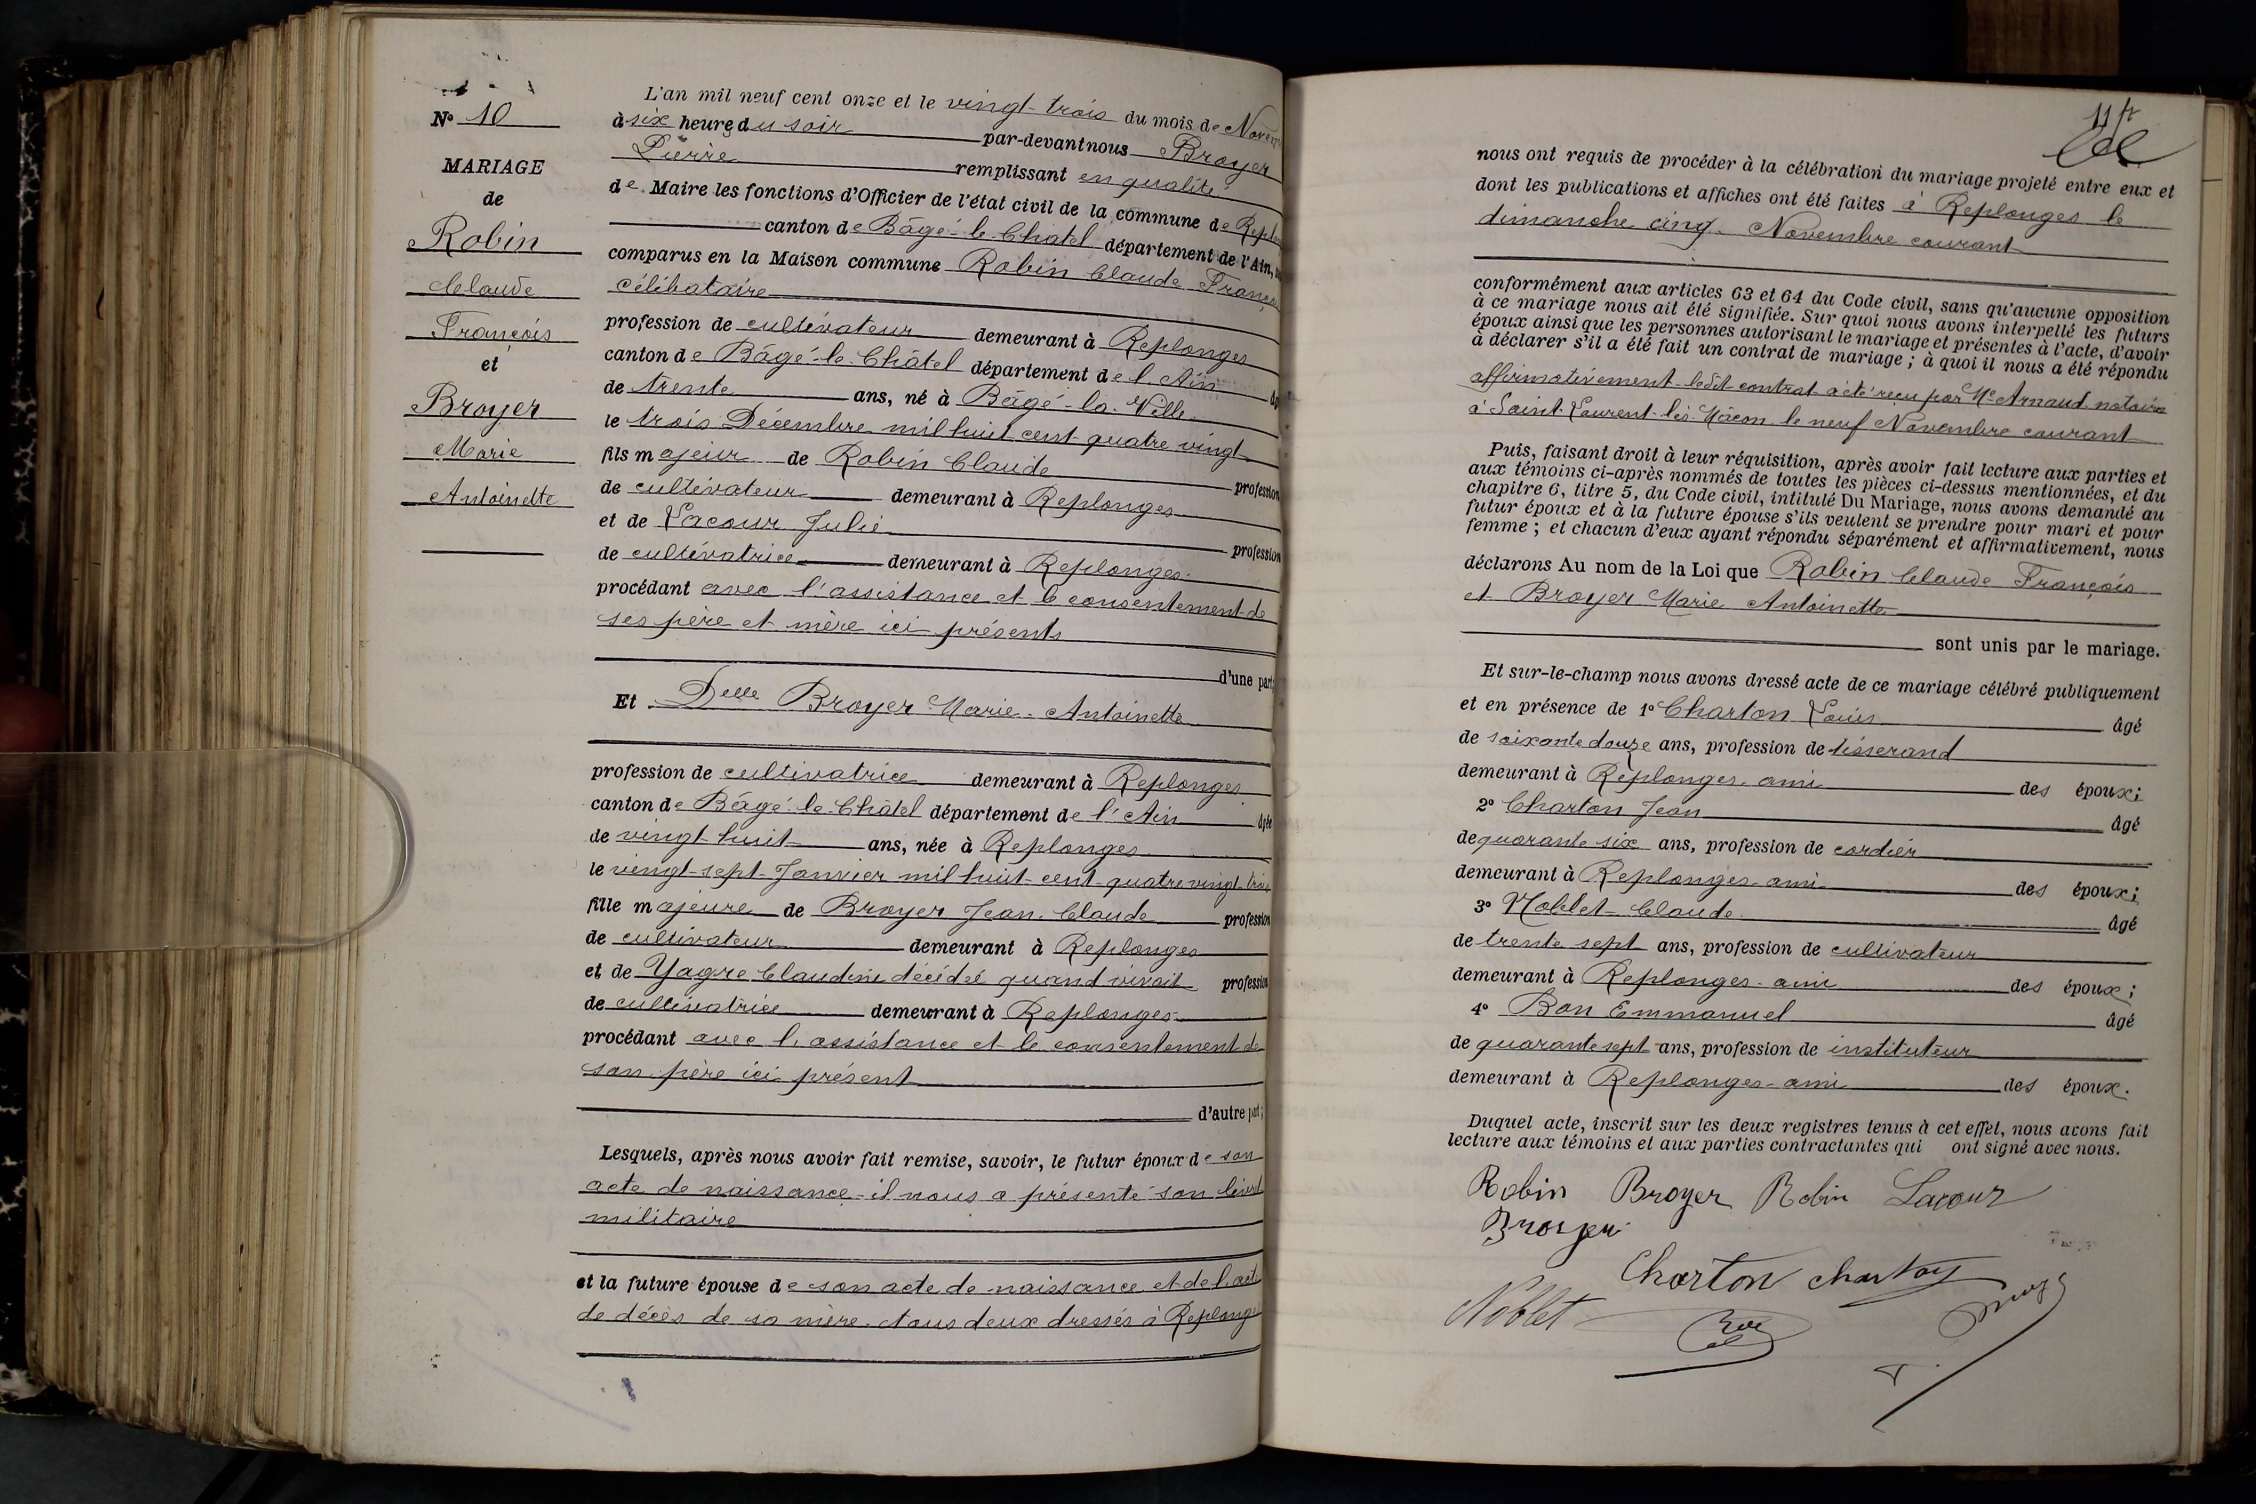 N° 10
MARIAGE
de
Robin
Claude
François
et
Broyer
Marie
Antoinette
L'an mil neuf cent onze et le vingt-trois du mois de Novem
à six heures du soir par-devant nous Broyer
Pierre remplissant en qualité
de Maire les fonctions d'Officier de l'état civil de la commune de Replon
canton de Bâgé-le-Chatel département de l'Ain,
comparus en la Maison commune Robin Claude Françoi
célibataire
profession de cultivateur demeurant à Replonges
canton de Bâgé-le-Châtel département de l'Ain âg
de trente ans, né à Bâgé-la-Ville
le trois Décembre mil huit cent quatre vingt
fils majeur de Robin Claude profession
de cultivateur demeurant à Replonges
et de Lacour Julie profession
de cultivatrice demeurant à Replonges
procédant avec l'assistance et le consentement de
ses père et mère ici présents
d'une part;
Et Delle Broyer Marie-Antoinette
profession de cultivatrice demeurant à Replonges
canton de Bâgé-le-Châtel département de l'Ain âgée
de vingt-huit ans, née à Replonges
le vingt-sept-Janvier mil huit-cent-quatre vingt-trois
fille majeure de Broyer Jean-Claude profession
de cultivateur demeurant à Replonges
et de Yagre Claudine décédée quand vivait profession
de cultivatrice demeurant à Replonges
procédant avec l'assistance et le consentement de
son père ici présent
d'autre part;
Lesquels, après nous avoir fait remise, savoir, le futur époux de son
acte de naissance - il nous a présenté son livret
militaire
et la future épouse de son acte de naissance et de l'acte
de décès de sa mère. Tous deux dressés à Replong
117
nous ont requis de procéder à la célébration du mariage projeté entre eux et
dont les publications et affiches ont été faites à Replonges le
dimanche cinq Novembre courant
conformément aux articles 63 et 64 du Code civil, sans qu'aucune opposition
à ce mariage nous ait été signifiée. Sur quoi nous avons interpellé les futurs
époux ainsi que les personnes autorisant le mariage et présentes à l'acte, d'avoir
à déclarer s'il a été fait un contrat de mariage; à quoi il nous a été répondu
affirmativement ledit contrat a été reçu par Me Arnaud notaire
à Saint-Laurent-les-Mâcon le neuf Novembre courant
Puis, faisant droit à leur réquisition, après avoir fait lecture aux parties et
aux témoins ci-après nommés de toutes les pièces ci-dessus mentionnées, et du
chapitre 6, titre 5, du Code civil, intitulé Du Mariage, nous avons demandé au
futur époux et à la future épouse s'ils veulent se prendre pour mari et pour
femme; et chacun d'eux ayant répondu séparément et affirmativement, nous
déclarons Au nom de la Loi que Robin Claude François
et Broyer Marie Antoinette
sont unis par le mariage.
Et sur-le-champ nous avons dressé acte de ce mariage célébré publiquement
et en présence de 1° Charton Louis âgé
de soixante douze ans, profession de tisserand
demeurant à Replonges ami des époux;
2° Charton Jean âgé
de quarante six ans, profession de cordier
demeurant à Replonges ami des époux;
3° Noblet Claude âgé
de trente sept ans, profession de cultivateur
demeurant à Replonges ami des époux;
4° Bon Emmanuel âgé
de quarante sept ans, profession de instituteur
demeurant à Replonges ami des époux.
Duquel acte, inscrit sur les deux registres tenus à cet effet, nous avons fait
lecture aux témoins et aux parties contractantes qui ont signé avec nous.
Robin Broyer Robin Lacour
Broyer
Charton charton
Noblet